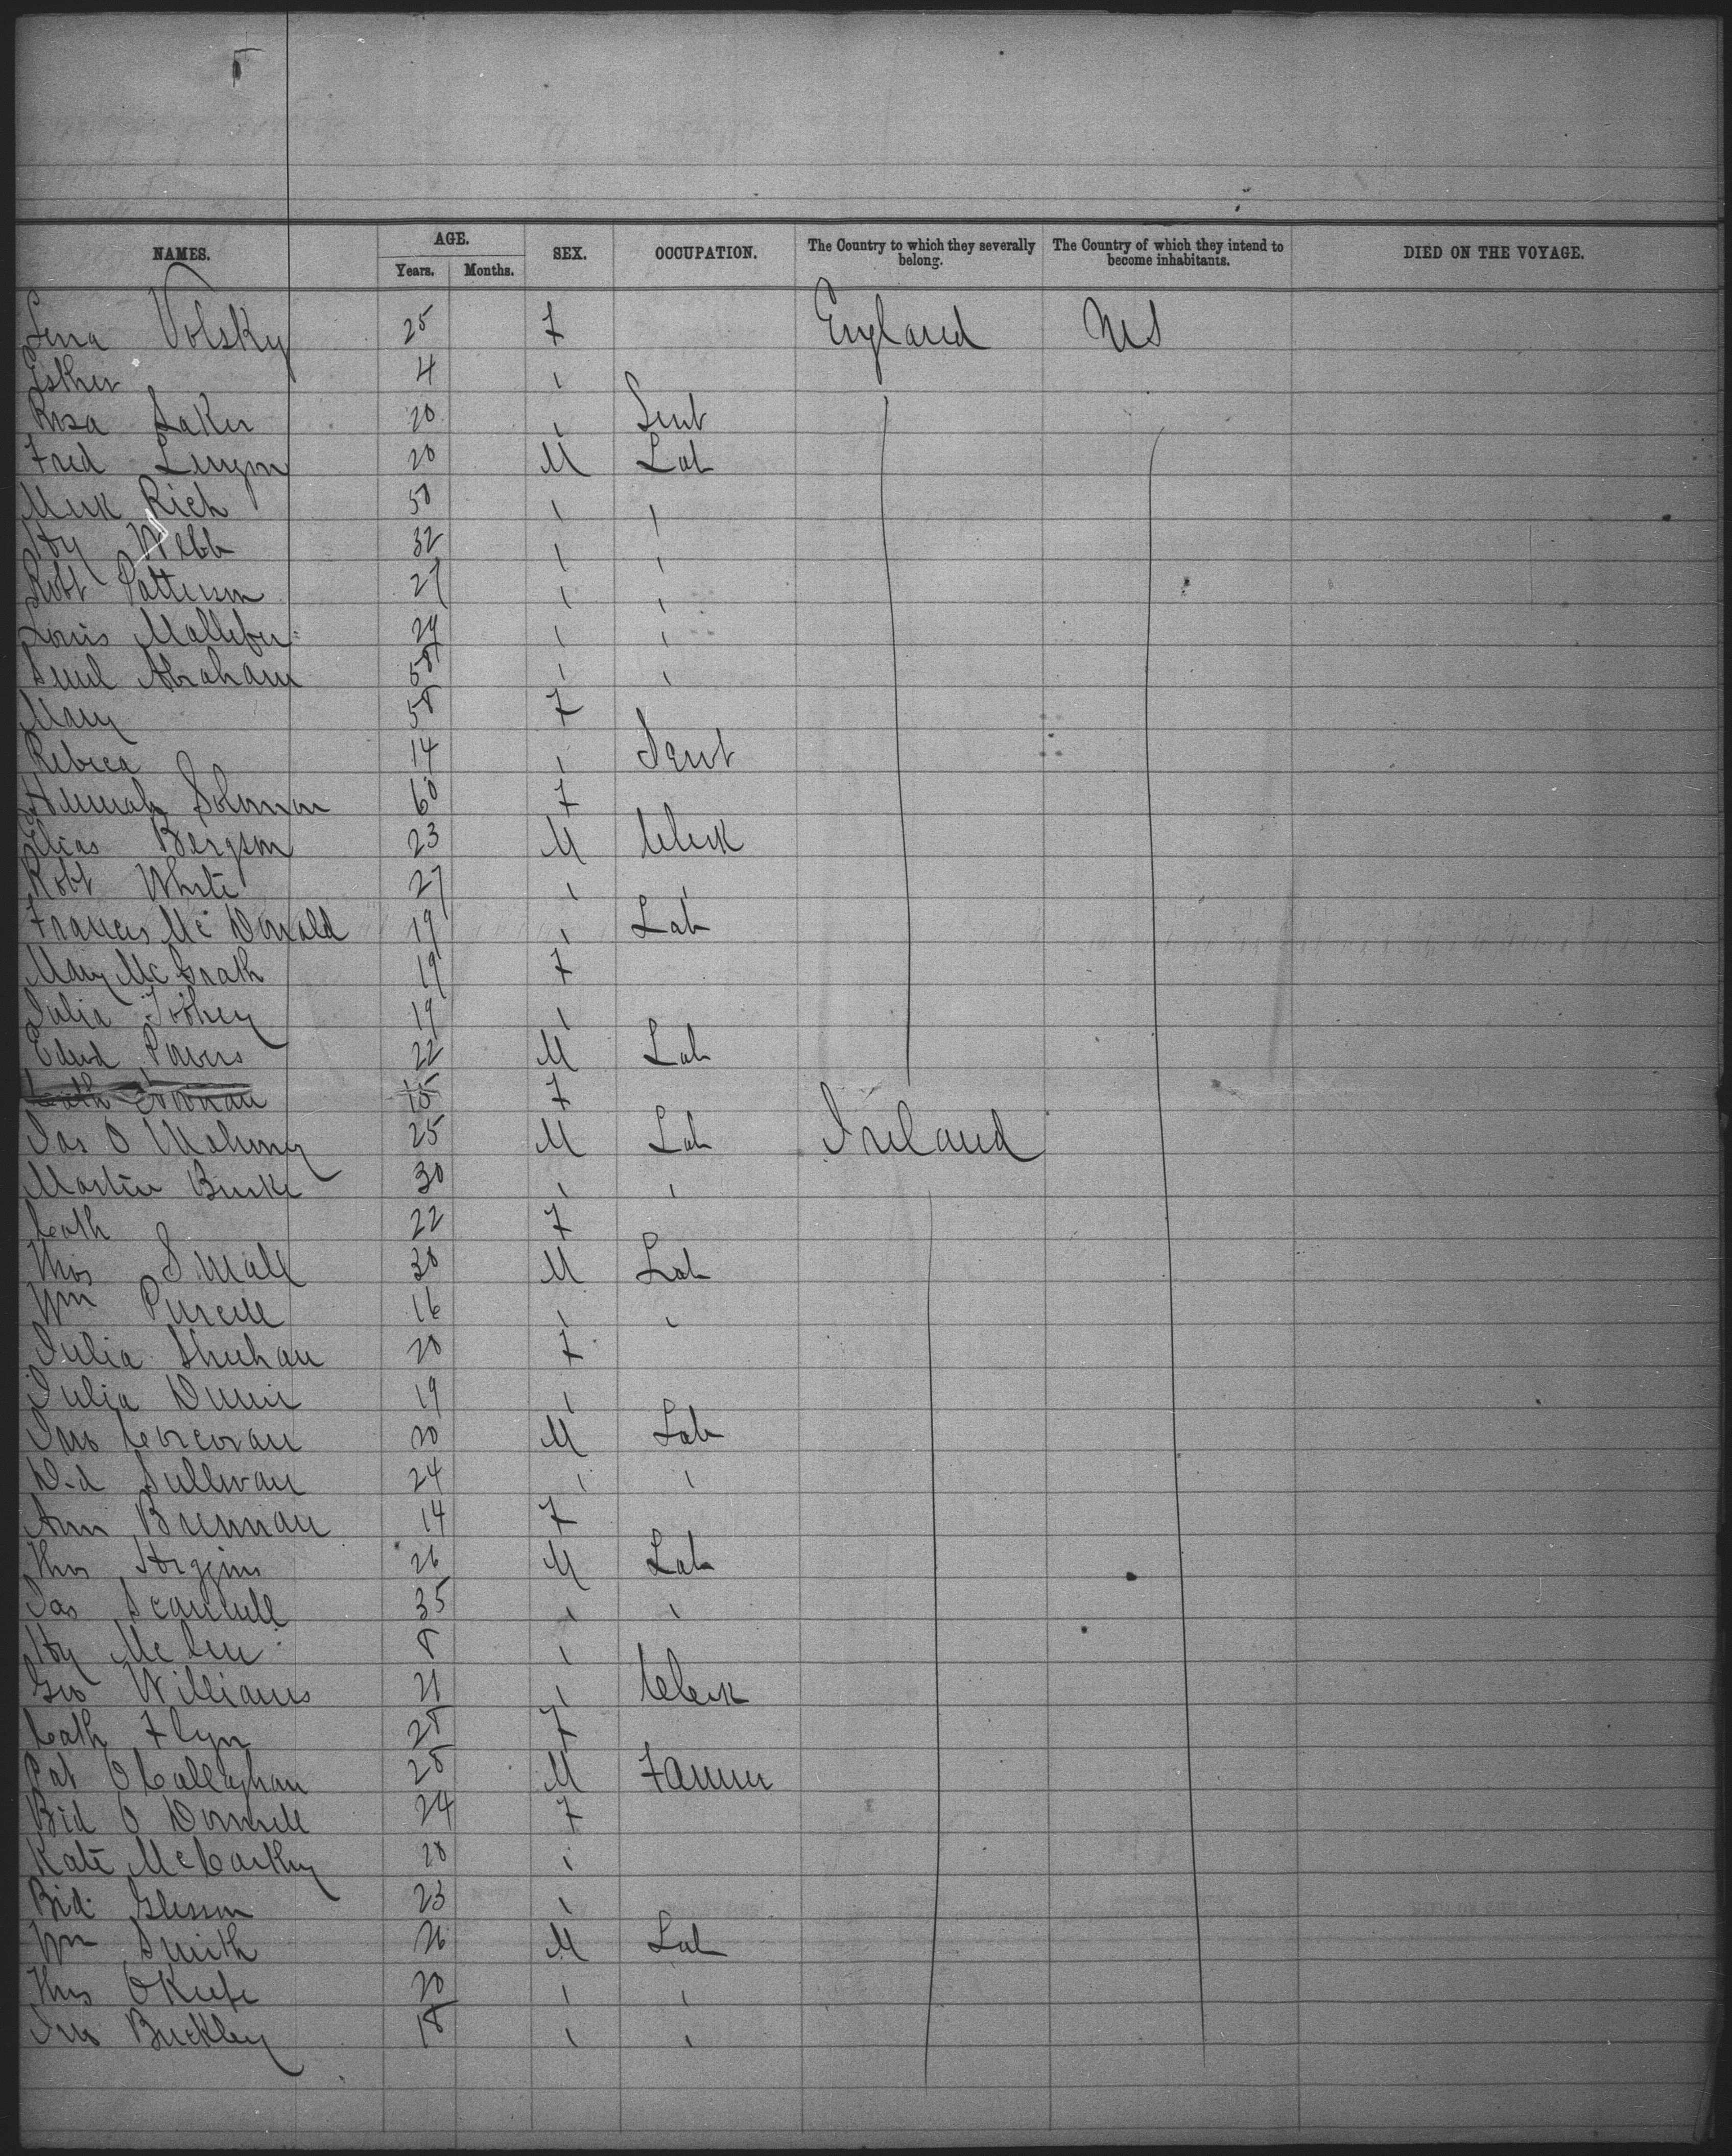 NAMES. AGE. SEX. OCCUPATION. The Country to which they severally belong. The Country of which they intend to become inhabitants. DIED ON THE VOYAGE.
Years. Months.
Lena Volsky 25 F England US
Esther 4 "
Rosa Saker 20 " Servt
Fred 20 M Lab
Rich 50 " "
Hy Webb 32 " "
Robt Patterson 27 " "
Louis 24 " "
Saml Abraham 58 " "
Mary 58 F
Rebeca 14 " Servt
Hannah Solomon 60 F
Elias Bergson 23 M Clerk
Robt White 27 " "
Francis Mc Donald 19 " Lab
Mary Mc Grath 19 F
Julia Toohey 19 "
Edwd Powers 22 M Lab
Cath 15 F
Jas O Mahony 25 M Lab Ireland
Martin Burke 30 " "
Cath 22 F
Thos Small 30 M Lab
Wm Purcell 16 " "
Julia Sheehan 20 F
Julia 19 "
Jno Corcoran 20 M Lab
D-d Sullivan 24 " "
Ann Brennan 14 F
Thos Higgins 26 M Lab
Jas Scannell 35 " "
Hy 8 "
Geo Williams 21 " Clerk
Cath Flyn 28 F
Pat O Callaghan 28 M Farmer
Bid O Donnell 24 F
Kate McCarthy 20 "
Bid. Gleeson 23 "
Wm Smith 26 M Lab
Thos OKeefe 20 " "
Jno Buckley 18 " "